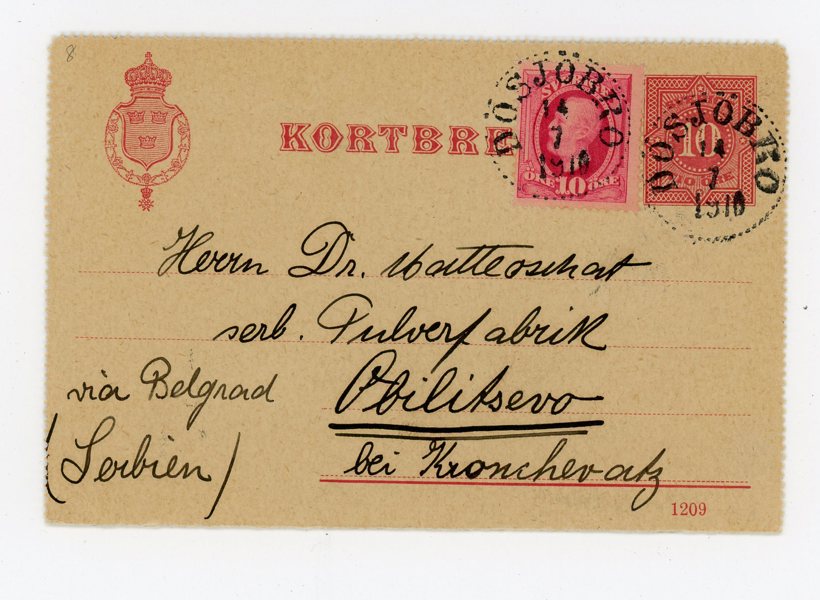 8
KORTBRE
DÖSJÖBRO
14
7
1910
ÖRE 10 ÖRE
DÖSJÖBRO
14
7
1910
10
Herrn Dr.
serb. Pulverfabrik
via Belgrad
Obilitsevo
(Serbien)
bei Kronchevatz
1209